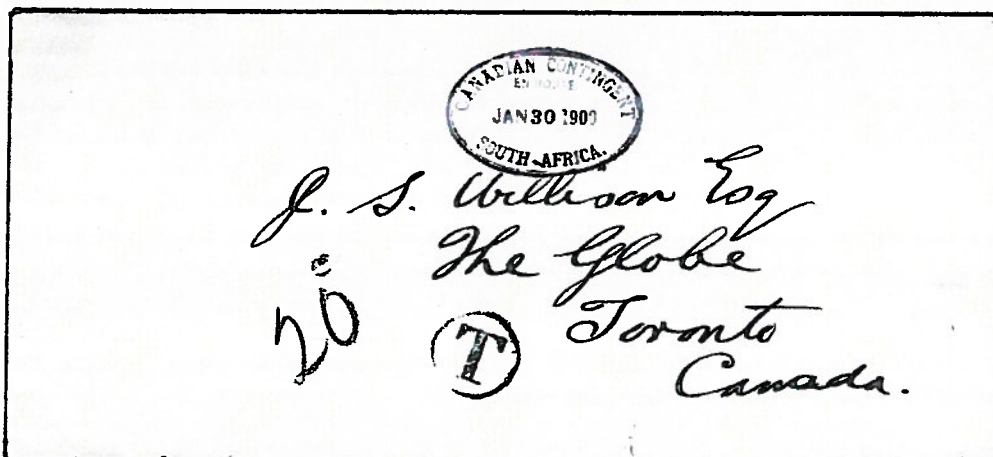 CANADIAN CONTINGENT
EN ROUTE
JAN 30 1900
SOUTH-AFRICA.
J. S. Willison Esq
The Globe
Toronto
Canada.
c
20
T